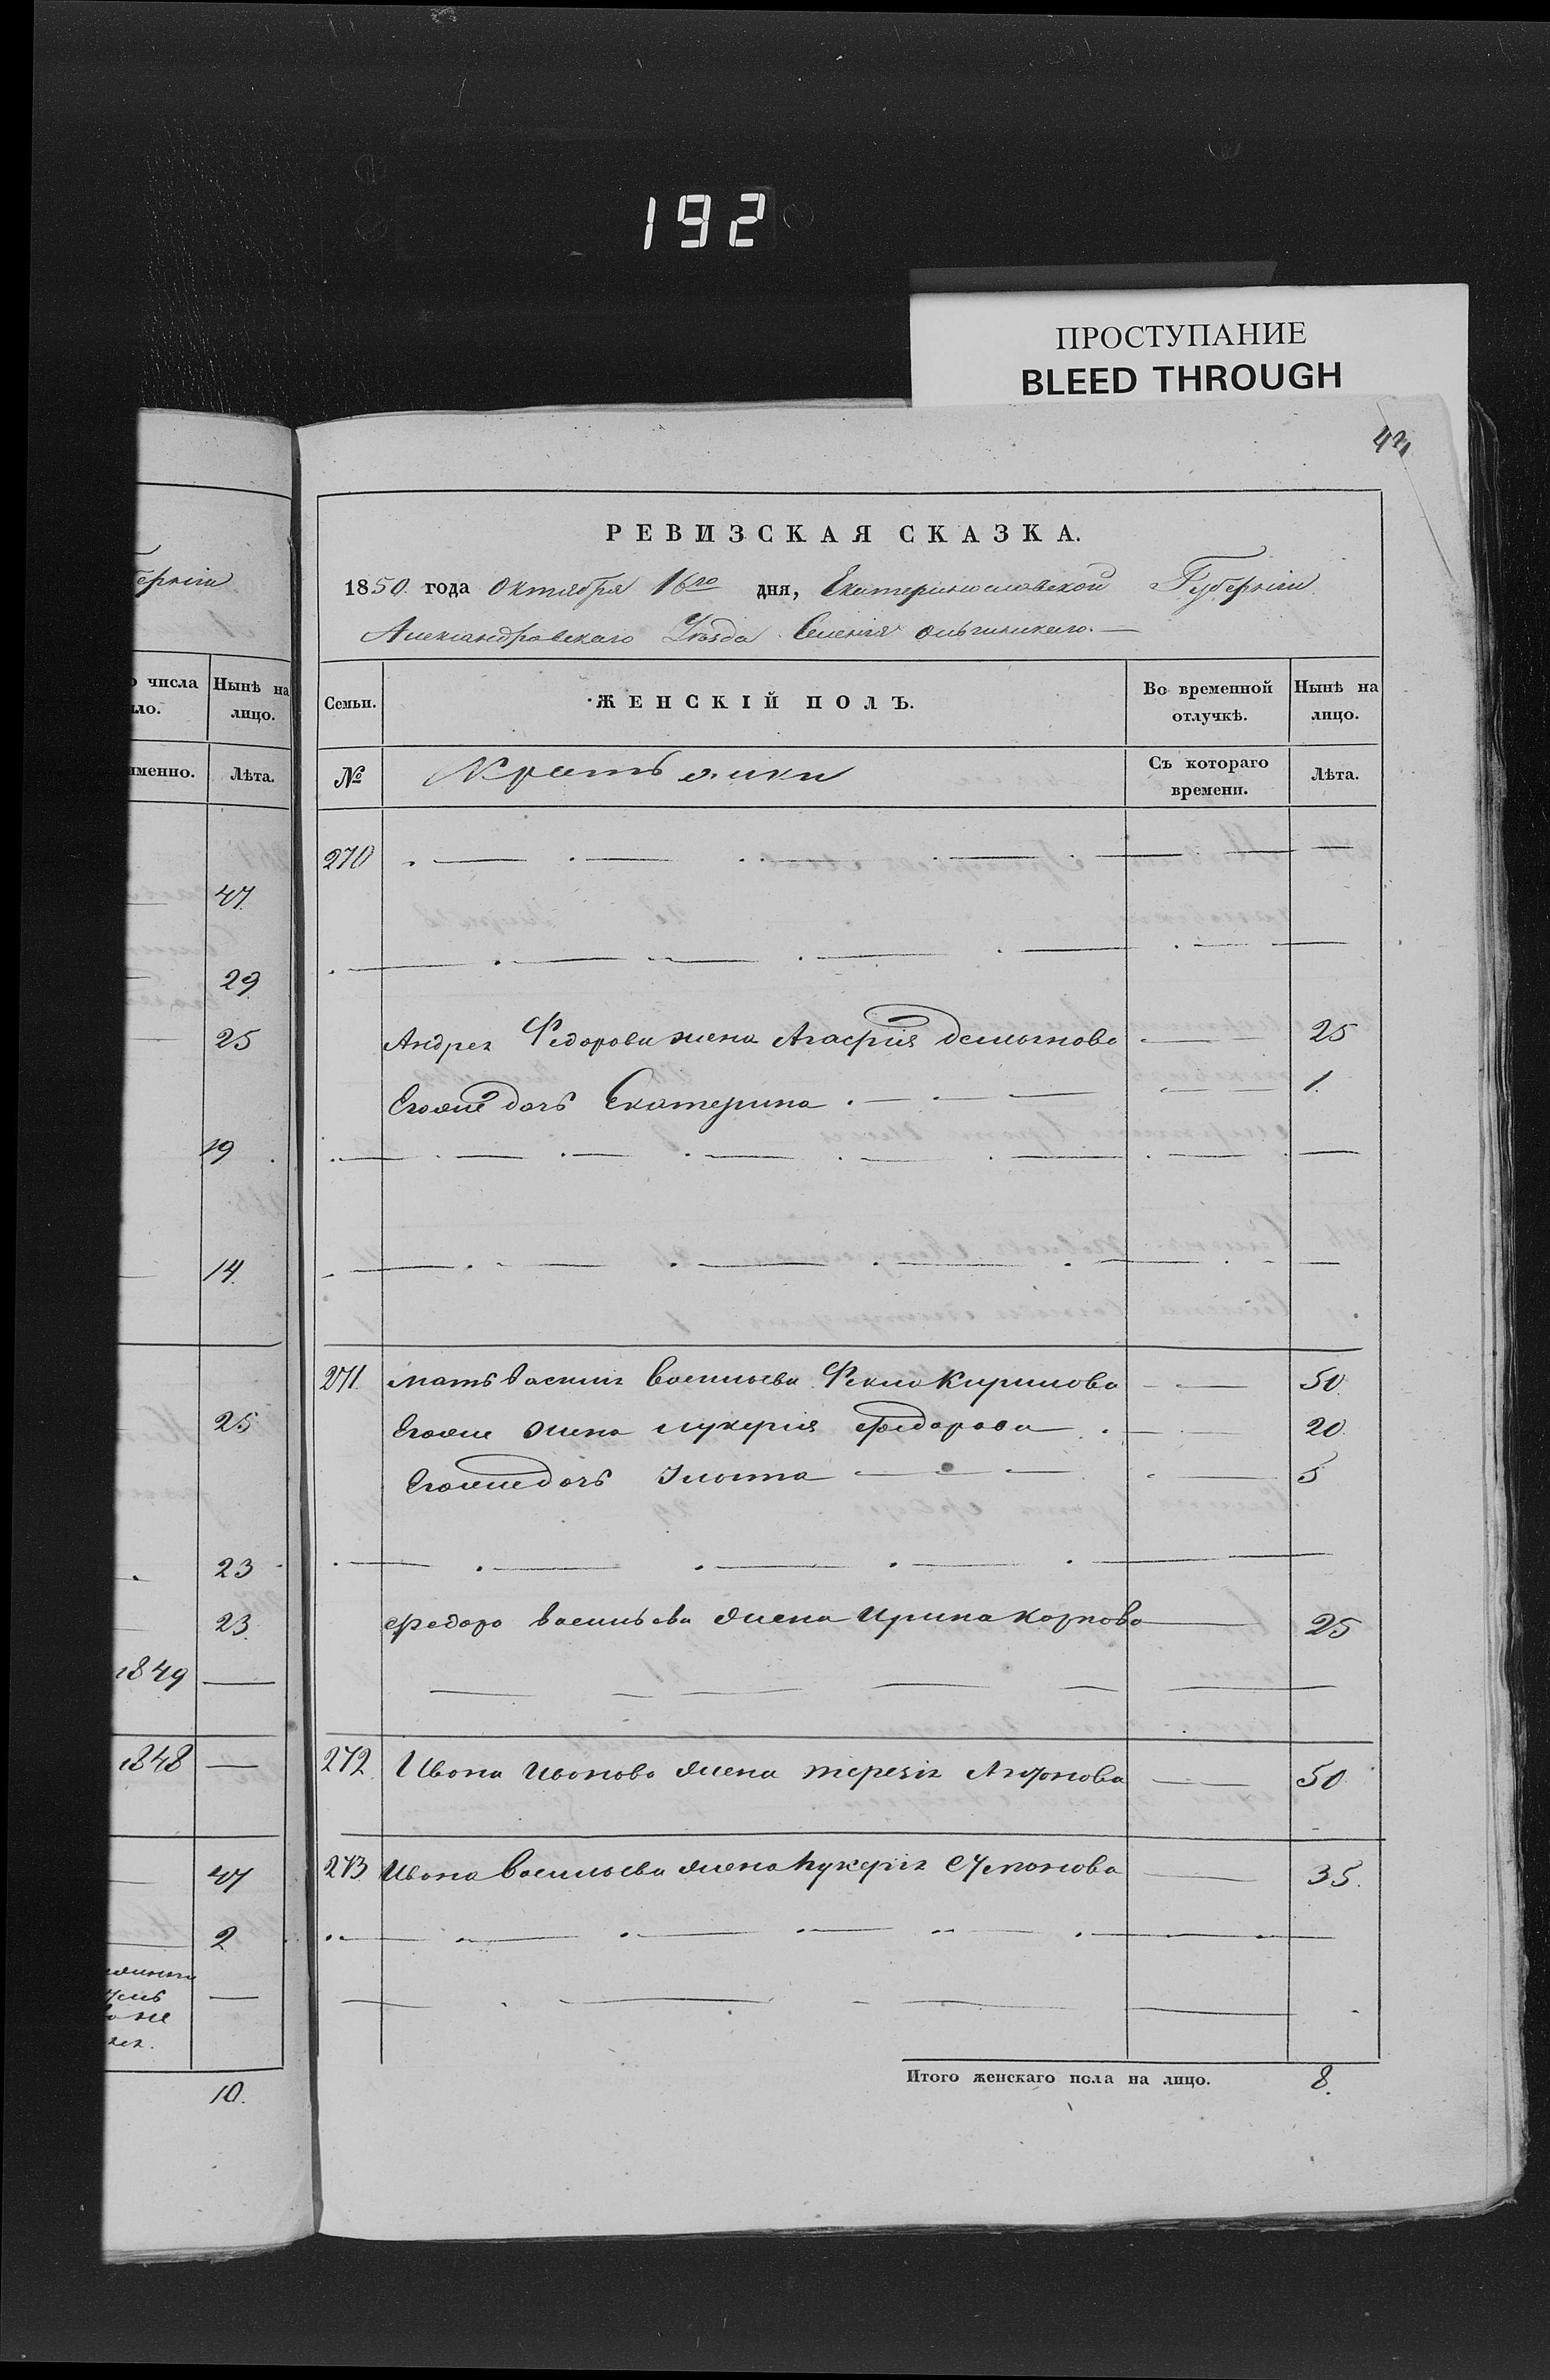 192
ПРОСТУПАНИЕ
BLEED THROUGH
42
РЕВИЗСКАЯ СКАЗКА.
1850 года Октября 16го дня, Екатеринославской Губерніи
Александровскаго Уѣзда Селенія
Семьи. ЖЕНСКІЙ ПОЛЪ. Во временной отлучкѣ. Нынѣ на лицо.
№ Съ котораго времени. Лѣта.
270
Андрея Федорова жена Агафія 25
Егоже дочь Екатерина 1.
271 мать Василия Васильева Фекла Кирилова 50
Егоже жена лукерія федорова 20.
Егоже дочь 5
федора васильева жена Ирина Карпова 25
272 Ивана Иванова жена Антонова 50
273 Ивана Васильева жена лукерія 35.
Итого женскаго пола на лицо. 8.
губерніи
числа Нынѣ на
ло. лицо.
именно. Лѣта.
47
29
25
19
14
25
23
23
1849
1848
47
2
10.